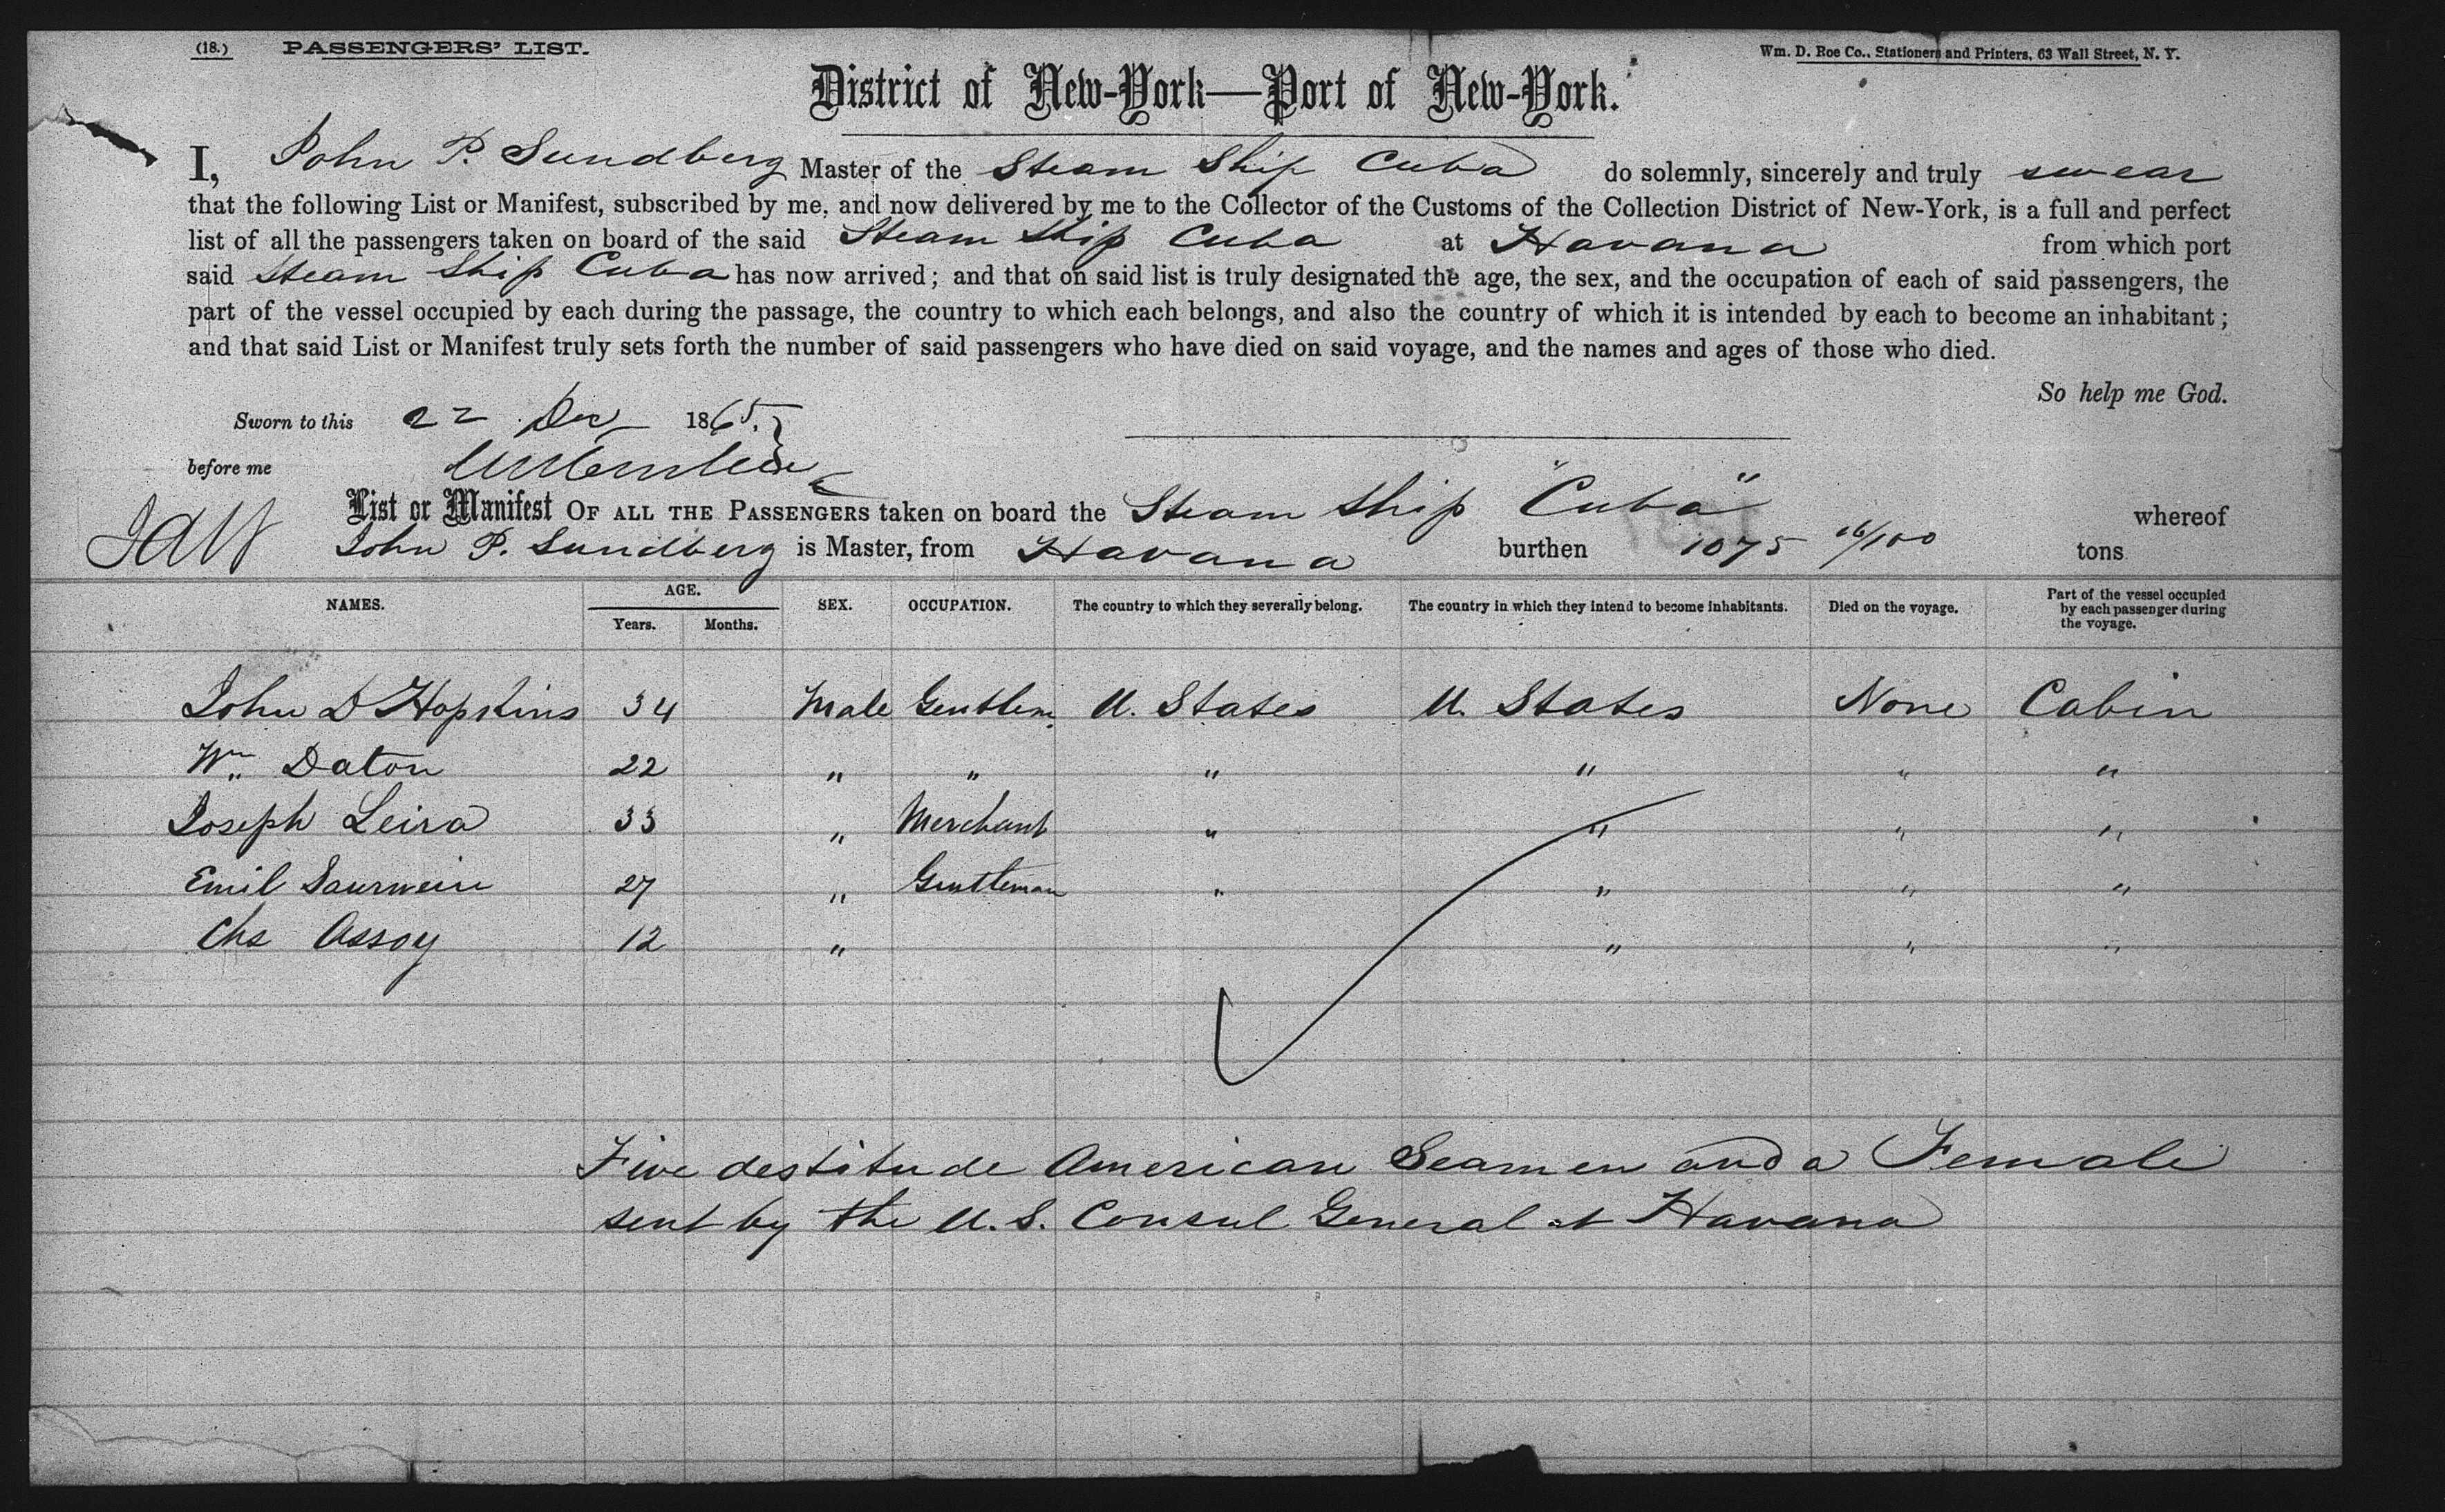 (18.) PASSENGERS' LIST. Wm. D. Roe Co., Stationers and Printers, 63 Wall Street, N. Y.
District of New-York—Port of New-York.
I, John P. Sundberg Master of the Steam Ship Cuba do solemnly, sincerely and truly swear
that the following List or Manifest, subscribed by me, and now delivered by me to the Collector of the Customs of the Collection District of New-York, is a full and perfect
list of all the passengers taken on board of the said Steam Ship Cuba at Havana from which port
said Steam Ship Cuba has now arrived; and that on said list is truly designated the age, the sex, and the occupation of each of said passengers, the
part of the vessel occupied by each during the passage, the country to which each belongs, and also the country of which it is intended by each to become an inhabitant;
and that said List or Manifest truly sets forth the number of said passengers who have died on said voyage, and the names and ages of those who died.
So help me God.
Sworn to this 22 Dec 1865.
before me
List or Manifest OF ALL THE PASSENGERS taken on board the Steam Ship "Cuba" whereof
John P. Sundberg is Master, from Havana burthen 1075 16/100 tons
NAMES. AGE. Years. Months. SEX. OCCUPATION. The country to which they severally belong. The country in which they intend to become inhabitants. Died on the voyage. Part of the vessel occupied by each passenger during the voyage.
John D Hopkins 34 Male Gentlem U. States U. States None Cabin
Wm. Daton 22 " " " " " "
Joseph Leira 33 " Merchant " " " "
Emil Saurwein 27 " Gentleman " " " "
Chs Assoy 12 " " " "
Five destitude American Seamen and a Female
sent by the U.S. Consul General at Havana